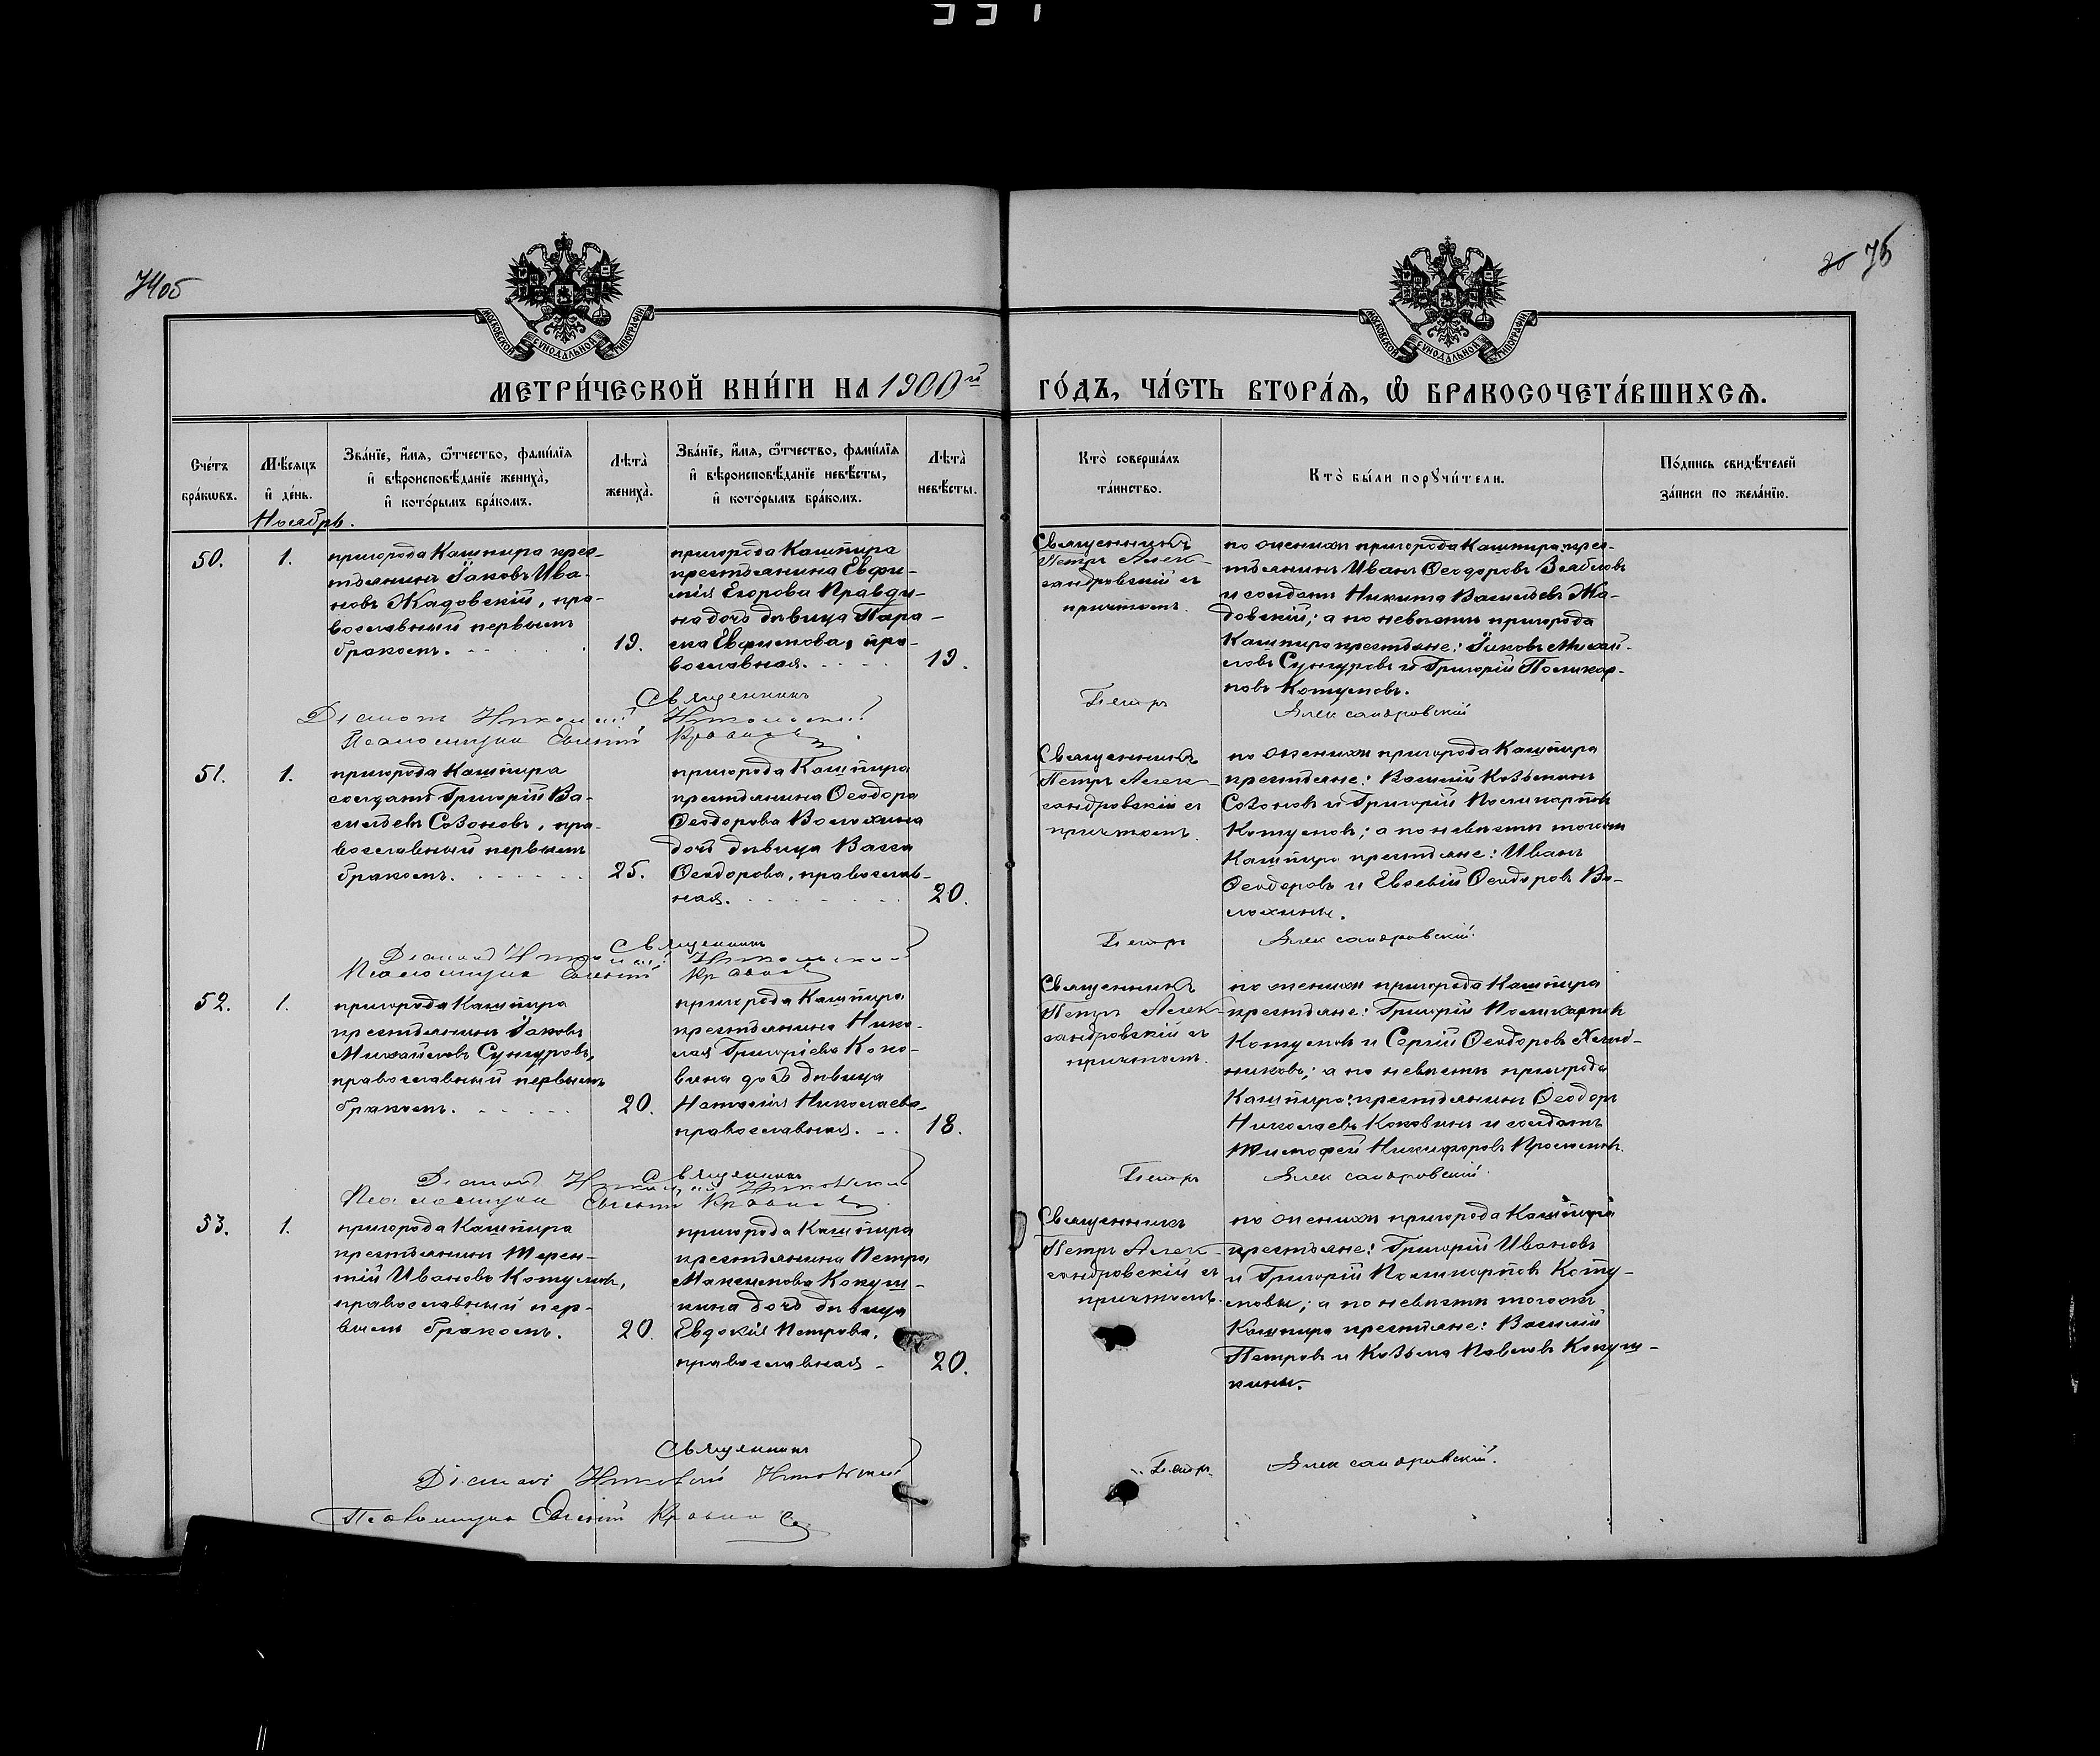 74об
75
МОСКОВСКОЙ СУНОДАЛЬНОЙ ТИПОГРАФІИ
МОСКОВСКОЙ СУНОДАЛЬНОЙ ТИПОГРАФІИ
МЕТРИ́ЧЕСКОЙ КНИ́ГИ НА 1900й ГО́ДЪ, ЧА́СТЬ ВТОРА́Я, Ѡ БРАКОСОЧЕТА́ВШИХСѦ.
Сче́тъ
бра́кѡвъ.
Мѣ́сяцъ
и де́нь.
Зва́нїе, и́мя, ѻ́тчество, фами́лїя
и вѣроисповѣ́данїе жениха̀,
и кото́рымъ бра́комъ.
Лѣта̀
жениха̀.
Зва́нїе, и́мя, ѻ́тчество, фами́лїя
и вѣроисповѣ́данїе невѣ́сты,
и кото́рымъ бра́комъ.
Лѣта̀
невѣ́сты.
Кто̀ соверша́лъ
та́инство.
Кто̀ бы́ли порꙋчи́тели.
По́дпись свидѣ́телей
за́писи по жела́нїю.
Ноябрь.
50.
1.
пригорода Кашпира крес-
тьянинъ Іаковъ Ива-
новъ Жадовскій, пра-
вославный первымъ
бракомъ.
19.
пригорода Кашпира
крестьянина Евфи-
мія Егорова Правди-
на дочь дѣвица Пара-
ева Евфимова, пра-
вославная.
19.
Священникъ
Петръ Алек-
сандровскій съ
причтомъ.
по женихѣ пригорода Кашпира: крес-
тьянинъ Иванъ Ѳеодоровъ Зябловъ
и солдатъ Никита Васильевъ Жа-
довскій; а по невѣстѣ пригорода
Кашпира крестьяне: Іаковъ Михай-
ловъ Сунгуровъ и Григорій Поликар-
повъ Котумовъ.
Священникъ Петръ Александровскій
Діаконъ Николай Никольскій
Псаломщикъ Евгеній
51.
1.
пригорода Кашпира
солдатъ Григорій Ва-
сильевъ Созоновъ, пра-
вославный первымъ
бракомъ.
25.
пригорода Кашпира
крестьянина Ѳеодора
Ѳеодорова Волохина
дочь дѣвица Васса
Ѳеодорова, православ-
ная.
20.
Священникъ
Петръ Алек-
сандровскій съ
причтомъ.
по женихѣ пригорода Кашпира
крестьяне: Василій Козьминъ
Созоновъ и Григорій Поликарповъ
Котумовъ; а по невѣстѣ тогоже
Кашпира крестьяне: Иванъ
Ѳеодоровъ и Евсевій Ѳеодоровъ Во-
лохины.
Священникъ Петръ Александровскій
Діаконъ Николай Никольскій
Псаломщикъ Евгеній
52.
1.
пригорода Кашпира
крестьянинъ Іаковъ
Михайловъ Сунгуровъ,
православный первымъ
бракомъ.
20.
пригорода Кашпира
крестьянина Нико-
лая Григоріева Коко-
вина дочь дѣвица
Наталія Николаева
православная.
18.
Священникъ
Петръ Алек-
сандровскій съ
причтомъ.
по женихѣ пригорода Кашпира
крестьяне: Григорій Поликарповъ
Котумовъ и Сергій Ѳеодоровъ
а по невѣстѣ пригорода
Кашпира: крестьянинъ Ѳеодоръ
Николаевъ Коковинъ и солдатъ
Тимофей Никифоровъ
Священникъ Петръ Александровскій
Діаконъ Николай Никольскій
Псаломщикъ Евгеній
53.
1.
пригорода Кашпира
крестьянинъ Терен-
тій Ивановъ Котумовъ,
православный пер-
вымъ бракомъ.
20.
пригорода Кашпира
крестьянина Петра
Максимова Кокуш-
кина дочь дѣвица
Евдокія Петрова,
православная
20.
Священникъ
Петръ Алек-
сандровскій съ
причтомъ.
по женихѣ пригорода Кашпира
крестьяне: Григорій Ивановъ
и Григорій Поликарповъ Коту-
мовы; а по невѣстѣ тогоже
Кашпира крестьяне: Василій
Петровъ и Козьма Павловъ Кокуш-
кины.
Священникъ Петръ Александровскій
Діаконъ Николай Никольскій
Псаломщикъ Евгеній